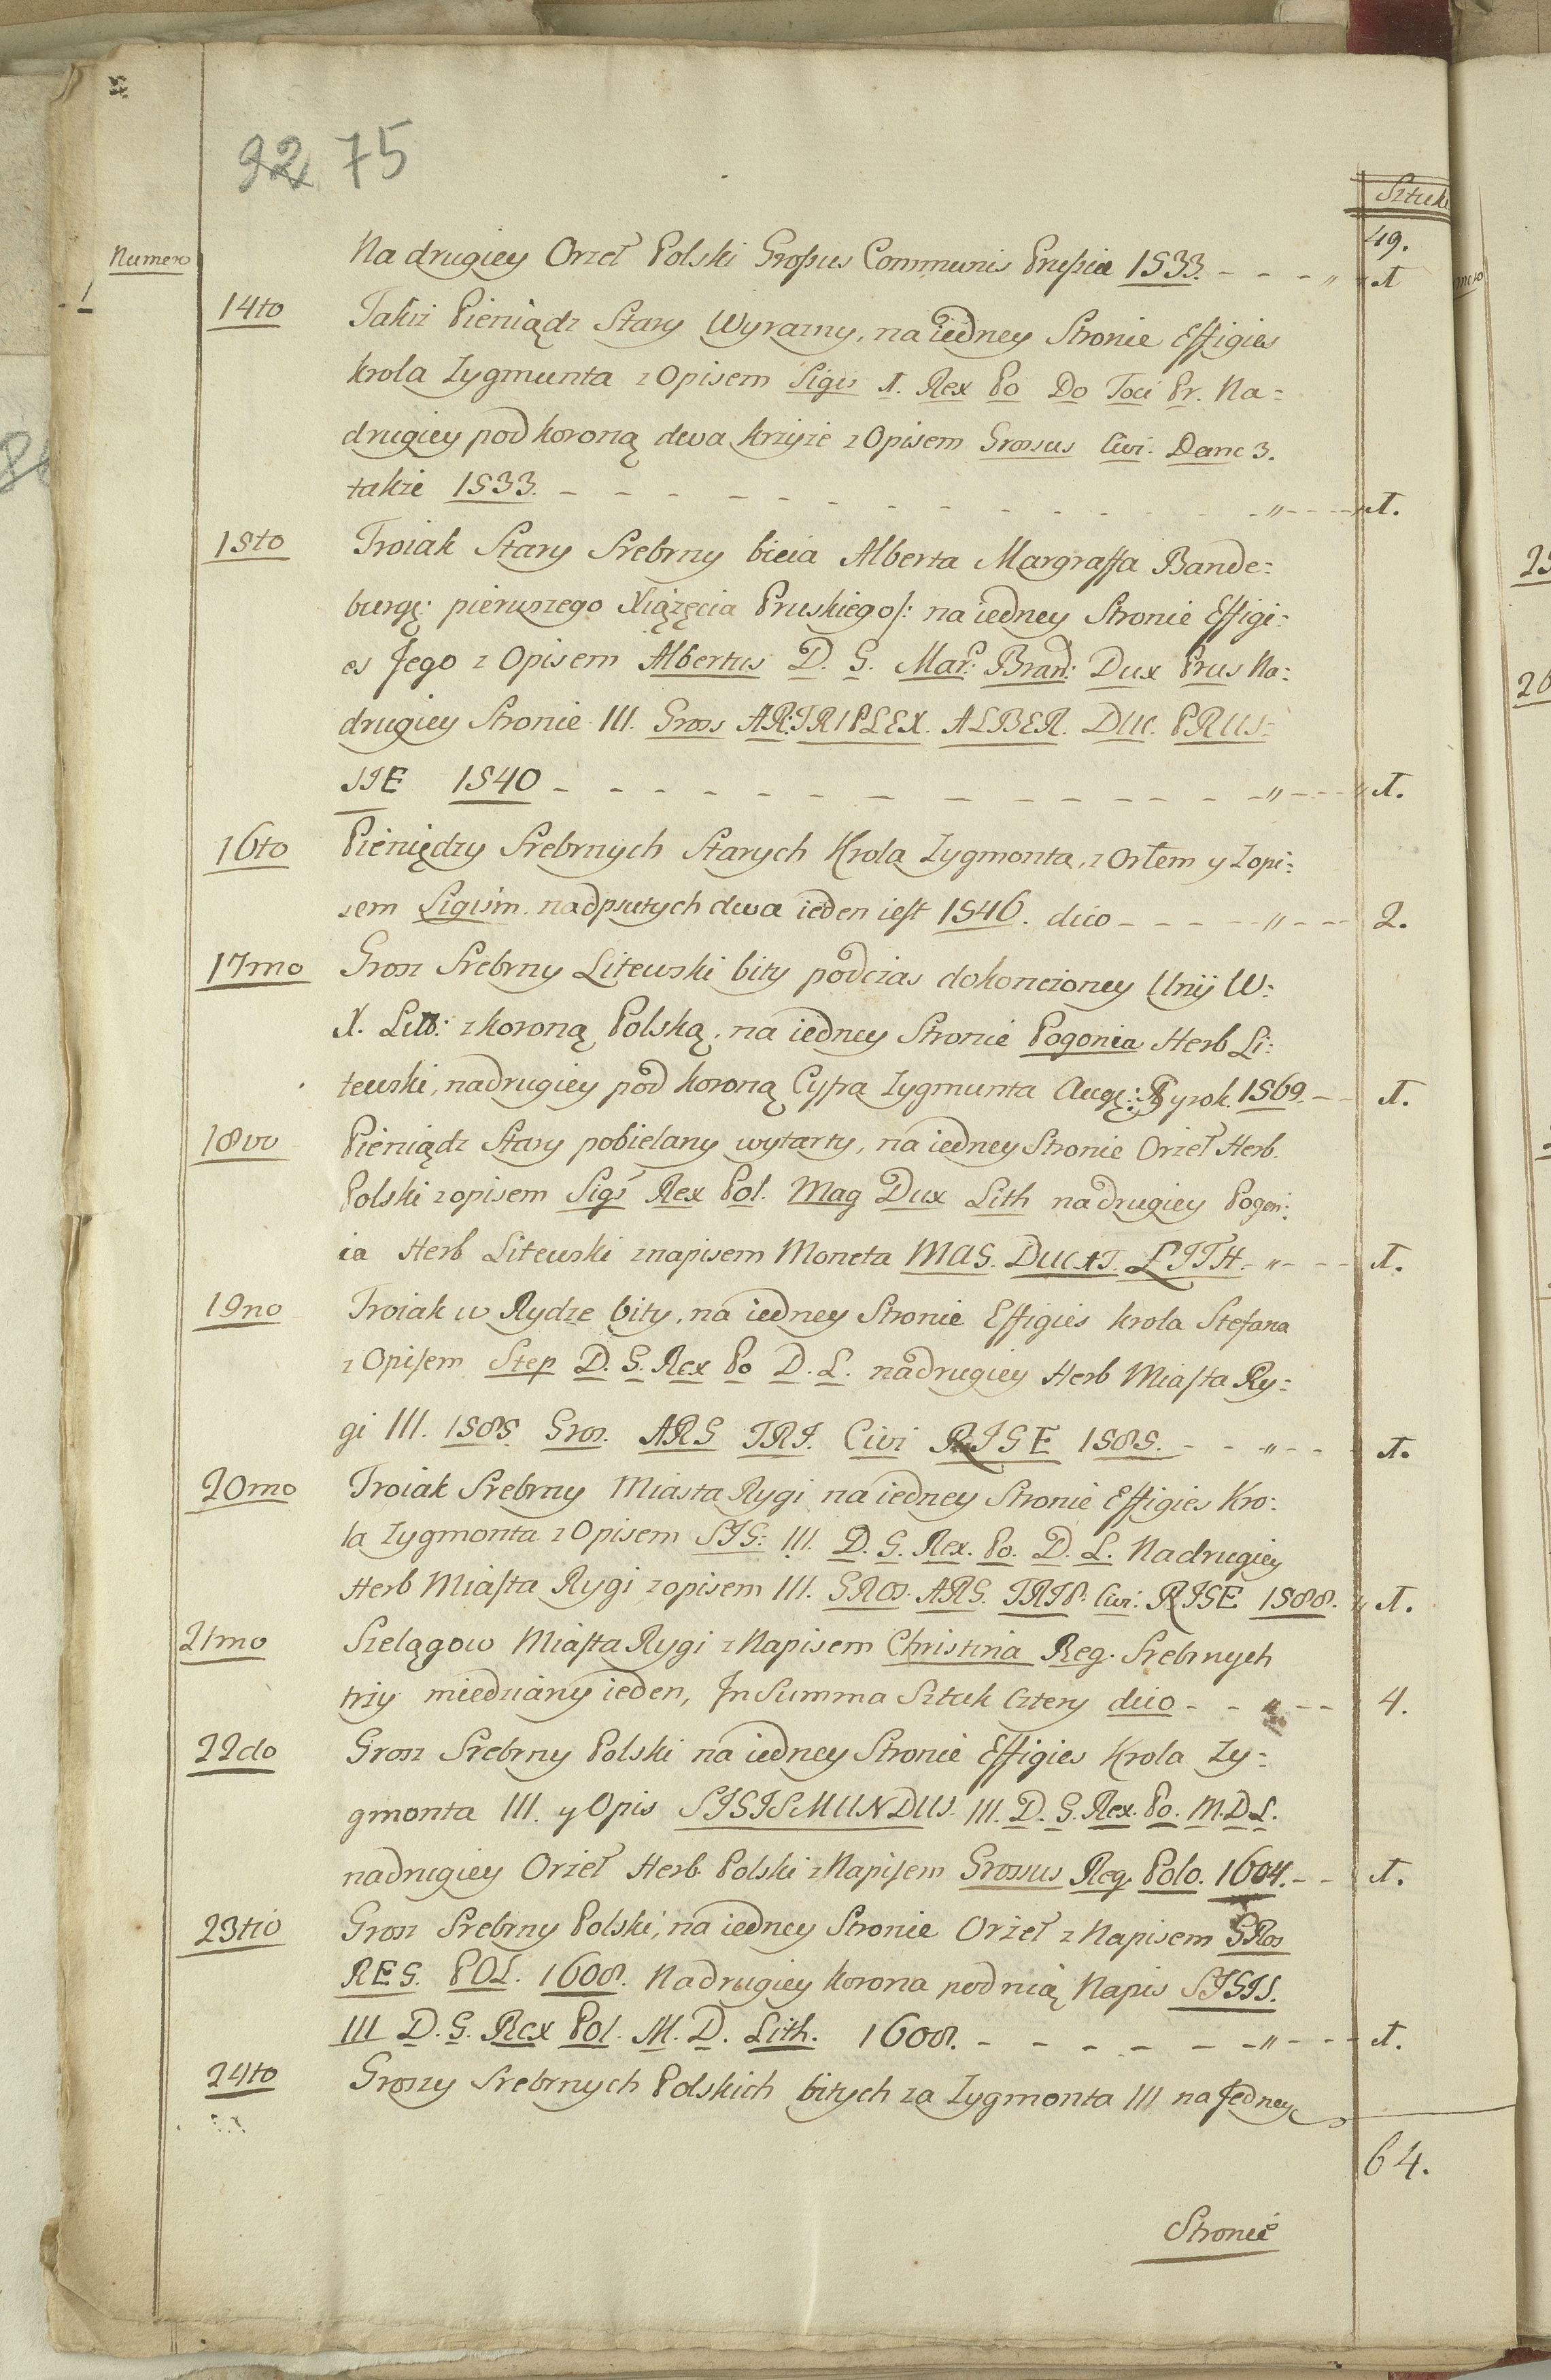 92 75
Sztuk
49.
Numero
Na drugiey Orzeł Polski Grossus Communis Prussia 1533. - - - " 1
14to Takiż Pieniądz Stary Wyrazny, na iedney Stronie Effigies
krola Zygmunta z Opisem Sigis I. Rex Po Do Toci Pr. Na=
drugiey pod koroną dwa krzyże z Opisem Grossus Civi. Danc 3.
także 1533. - - - - - - - - - - - - " - - - 1.
15to Troiak Stary Srebrny bicia Alberta Margraffa Bande=
burgę: pierwszego Xiążęcia Pruskiego/: na iedney Stronie Effigi=
es Jego z Opisem Albertus D. G. Mar: Brand: Dux Prus Na=
drugiey Stronie III. Gross AR: TRIPLEX. ALBER. DUC. PRUS=
SIE 1540 - - - - - - - - - - - - " - - - 1.
16to Pieniędzy Srebrnych Starych Krola Zygmonta, z Orłem y Zopi=
sem Sigism. nadpsutych dwa ieden iest 1546. duo - - - - " - - 2.
17mo Grosz Srebrny Litewski bity podczas dokonczoney Unij W:
X. Litt: z koroną Polską, na iedney Stronie Pogonia Herb Li:
tewski, nadrugiey pod koroną Cyfra Zygmunta Augę: y rok. 1569. - - 1.
18vo Pieniądz Stary pobielany wytarty, na iedney Stronie Orzeł Herb.
Polski z opisem Sigs Rex Pol. Mag Dux Lith nadrugiey Pogon:
ia Herb Litewski z napisem Moneta MAG. DUCAT. LITH. - " - - 1.
19no Troiak w Rydze bity, na iedney Stronie Effigies krola Stefana
z Opisem Step D. G. Rex Po D. L. nadrugiey Herb Miasta Ry=
gi III. 1585. Gros. ARG TRI. Civi RIGE 1585. - - " - - 1.
20mo Troiak Srebrny Miasta Rygi na iedney Stronie Effigies Kro:
la Zygmonta z Opisem SIG: III. D. G. Rex. Po. D. L. Nadrugiey
Herb Miasta Rygi z opisem III. GROS. ARG. TRIP. Civi: RIGE 1588. " 1.
21mo Szelągow Miasta Rygi z Napisem Christina Reg. Srebrnych
trzy miedziany ieden, In Summa Sztuk Cztery duo - - " - - 4.
22do Grosz Srebrny Polski na iedney Stronie Effigies Krola Zy=
gmonta III. y Opis SIGISMUNDUS. III. D. G. Rex. Po. M. D L.
nadrugiey Orzeł Herb Polski z Napisem Grossus Reg. Polo. 1604. - - 1.
23tio Grosz Srebrny Polski, na iedney Stronie Orzeł z Napisem GRos
REG. POL. 1608. Nadrugiey korona pod nią Napis SIGIS.
III D. G. Rex Pol. M. D. Lith. 1608. - - - - - - " - - 1.
24to Groszy Srebrnych Polskich bitych za Zygmonta III na Jedney
64.
Stronie